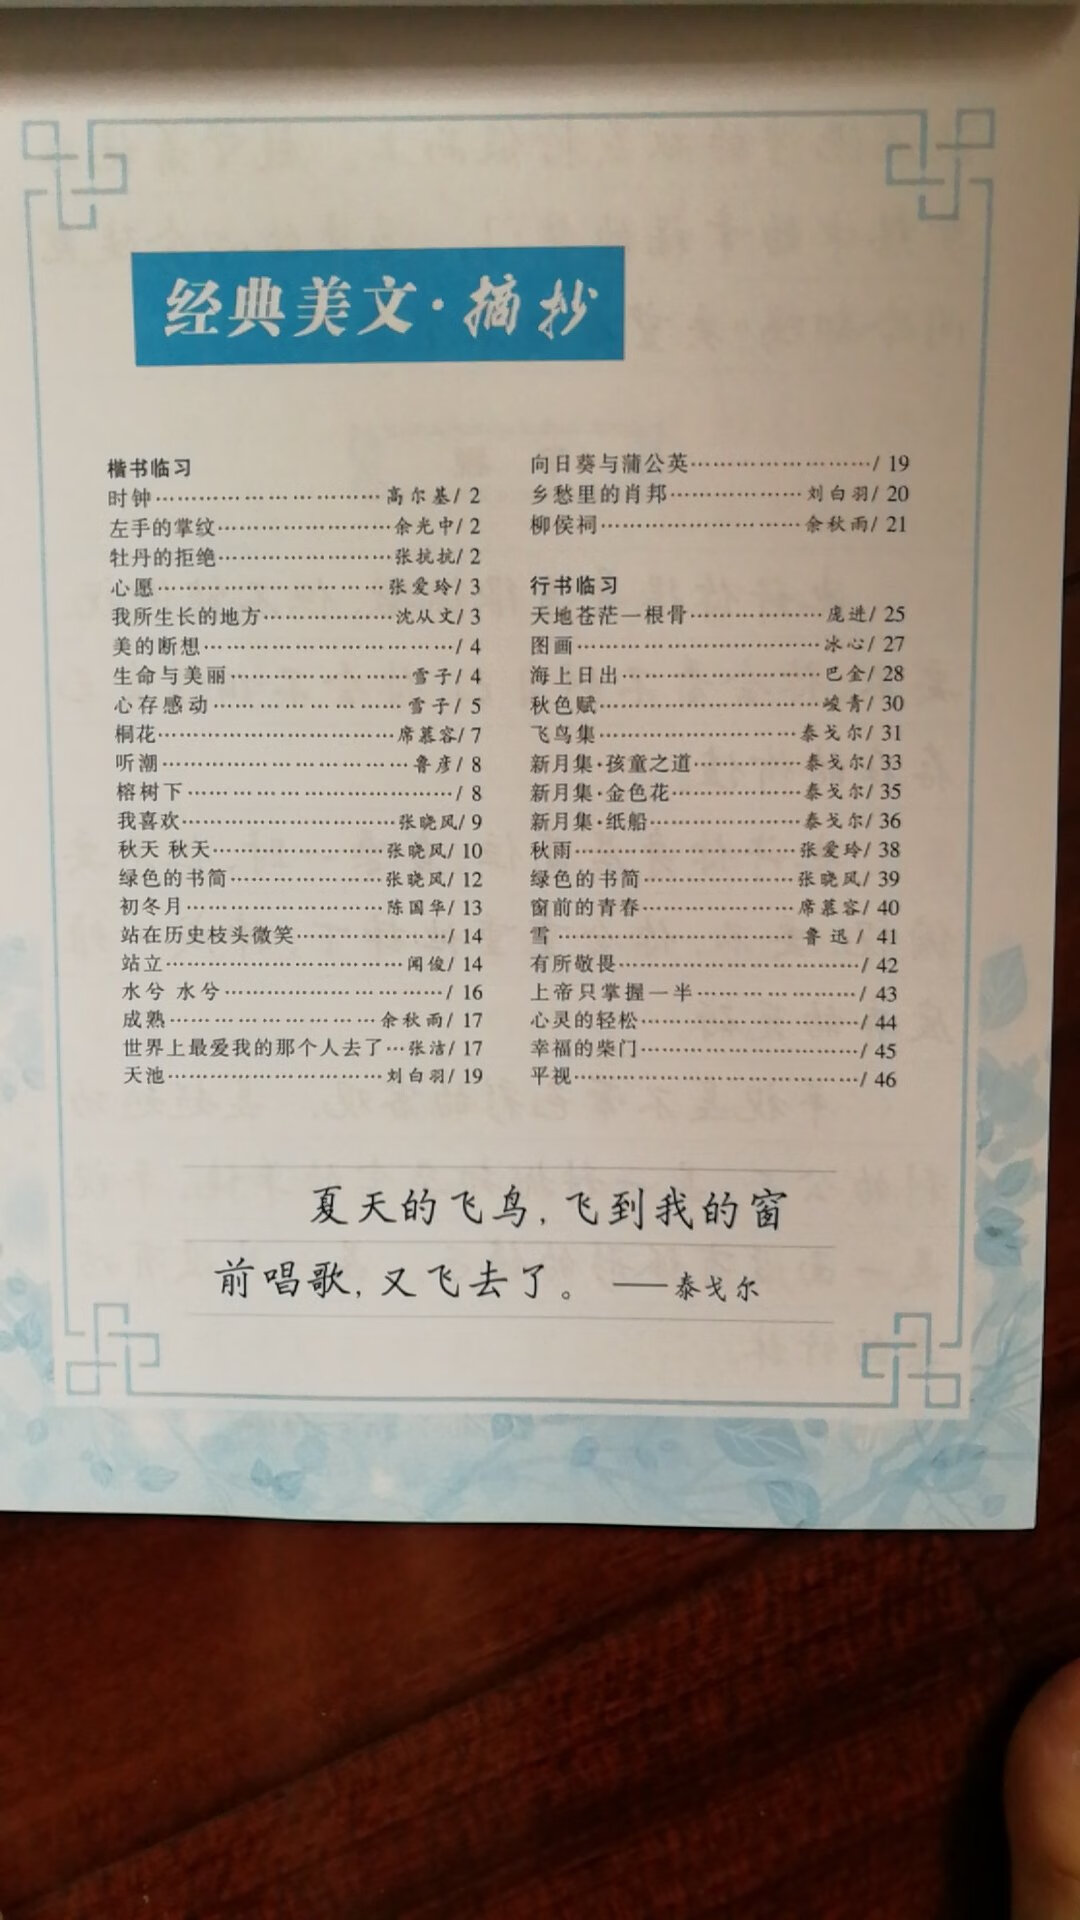 经典美文·摘抄
楷书临习
时钟……………………………高尔基/ 2
左手的掌纹………………………余光中/ 2
牡丹的拒绝………………………张抗抗/ 2
心愿……………………………张爱玲/ 3
我所生长的地方…………………沈从文/ 3
美的断想………………………………/ 4
生命与美丽………………………雪子/ 4
心存感动………………………雪子/ 5
桐花……………………………席慕容/ 7
听潮………………………………鲁彦/ 8
榕树下…………………………………/ 8
我喜欢……………………………张晓风/ 9
秋天 秋天………………………张晓风/ 10
绿色的书简……………………张晓风/ 12
初冬月…………………………陈国华/ 13
站在历史枝头微笑……………………/ 14
站立………………………………闻俊/ 14
水兮 水兮……………………………/ 16
成熟……………………………余秋雨/ 17
世界上最爱我的那个人去了…张洁/ 17
天池……………………………刘白羽/ 19
向日葵与蒲公英………………………/ 19
乡愁里的肖邦…………………刘白羽/ 20
柳侯祠…………………………余秋雨/ 21
行书临习
天地苍茫一根骨…………………庞进/ 25
图画………………………………冰心/ 27
海上日出…………………………巴金/ 28
秋色赋……………………………峻青/ 30
飞鸟集…………………………泰戈尔/ 31
新月集·孩童之道………………泰戈尔/ 33
新月集·金色花…………………泰戈尔/ 35
新月集·纸船……………………泰戈尔/ 36
秋雨……………………………张爱玲/ 38
绿色的书简……………………张晓风/ 39
窗前的青春……………………席慕容/ 40
雪………………………………鲁迅/ 41
有所敬畏………………………………/ 42
上帝只掌握一半………………………/ 43
心灵的轻松……………………………/ 44
幸福的柴门……………………………/ 45
平视……………………………………/ 46
夏天的飞鸟,飞到我的窗
前唱歌,又飞去了。——泰戈尔